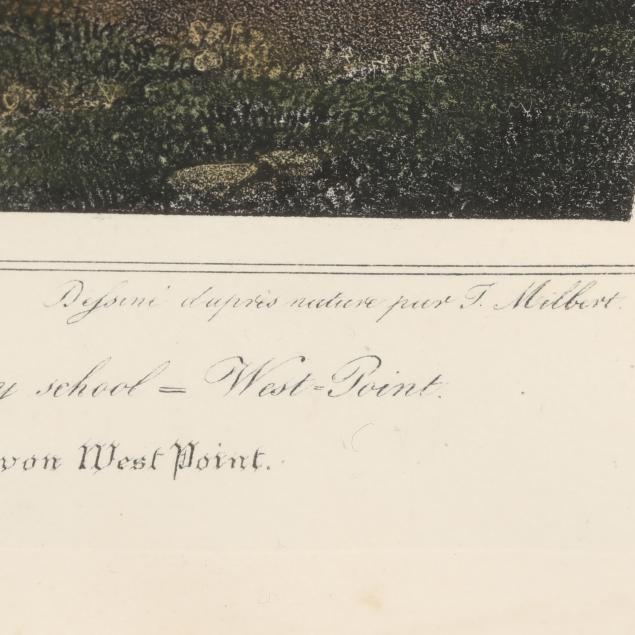 Dessiné d'après nature par J. Milbert.
y school = West=Point.
von West Point.